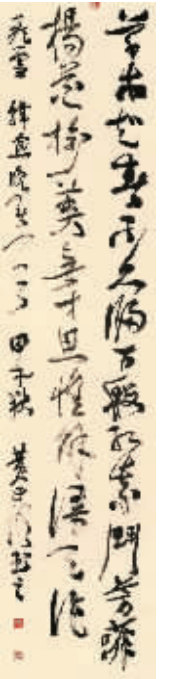 草樹知春不久歸百般紅紫鬥芳菲
楊花榆莢無才思惟解漫天作
飛雪 韓愈晚春 甲午秋 黃中書之